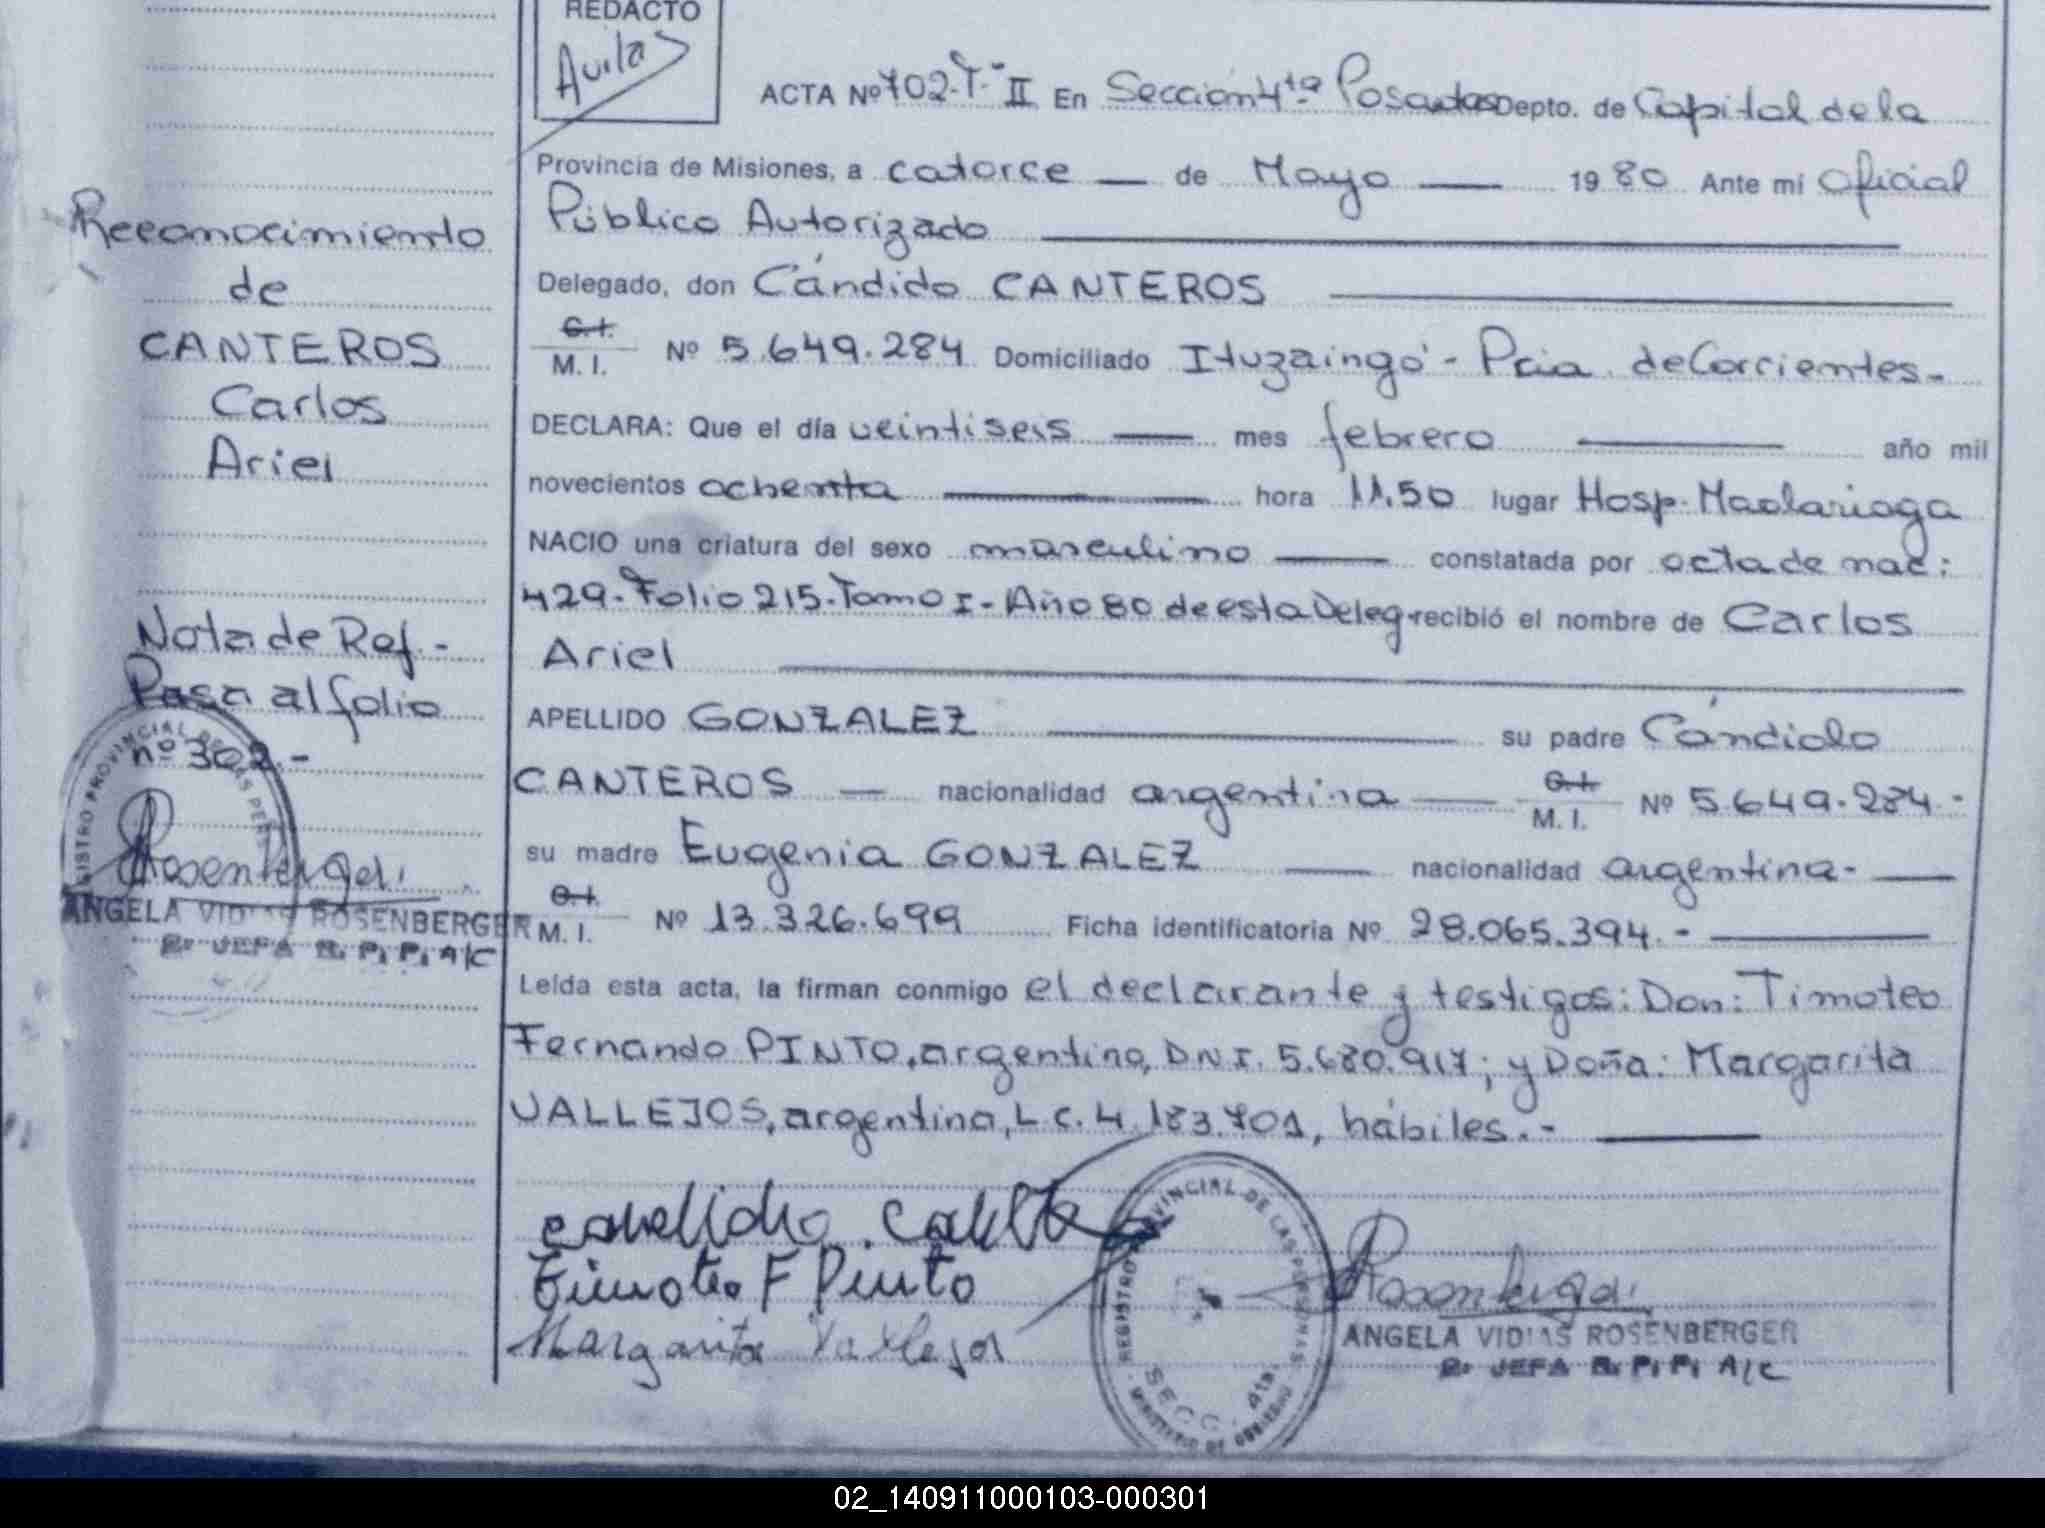 REDACTO
Avilas
ACTA Nº 702-T-II En Sección 4ta Posadas Depto. de Capital de la
Provincia de Misiones, a catorce — de Mayo — 1980 Ante mi Oficial
Público Autorizado
Delegado, don Cándido CANTEROS
C.I.
M. I. Nº 5.649.284 Domiciliado Ituzaingó - Pcia. de Corrientes.-
DECLARA: Que el día veintiseis — mes febrero — año mil
novecientos ochenta — hora 11.50 lugar Hosp. Madariaga
NACIO una criatura del sexo masculino — constatada por acta de nac:
429-Folio 215-Tomo I-Año 80 de esta Deleg. recibió el nombre de Carlos
Ariel
APELLIDO GONZALEZ — su padre Cándido
CANTEROS — nacionalidad argentina — C.I. M. I. Nº 5.649.284.-
su madre Eugenia GONZALEZ — nacionalidad argentina-
C.I.
M. I. Nº 13.326.699 Ficha identificatoria Nº 28.065.394.-
Leída esta acta, la firman conmigo el declarante y testigos: Don: Timoteo
Fernando PINTO, argentino, D.N.I. 5.680.917; y Doña: Margarita
VALLEJOS, argentina, L.C. 4.183.701, hábiles.-
Timoteo F Pinto
Margarita Vallejos
REGISTRO PROVINCIAL DE LAS PERSONAS
SECC. 4ta.
MINISTERIO DE GOBIERNO
Rosenberger
ANGELA VIDIAS ROSENBERGER
2º JEFA R. P. P. A/C
Reconocimiento
de
CANTEROS
Carlos
Ariel
Nota de Ref.-
Pasa al folio
nº 302.-
REGISTRO PROVINCIAL DE LAS PERS
Rosenberger
ANGELA VIDIAS ROSENBERGER
2º JEFA R. P. P. A/C
02_140911000103-000301